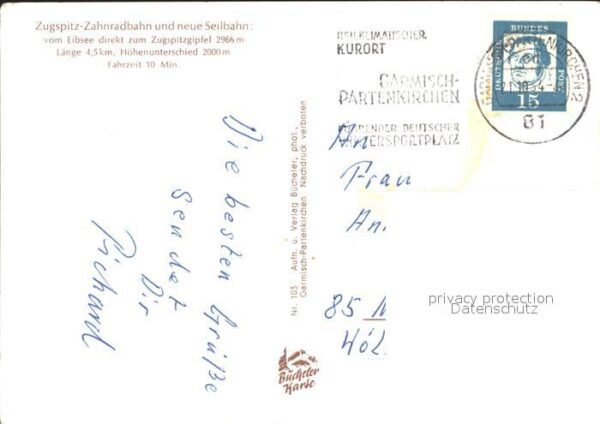 Zugspitz-Zahnradbahn und neue Seilbahn:
vom Eibsee direkt zum Zugspitzgipfel 2966 m
Länge 4,5 km, Höhenunterschied 2000 m
Fahrzeit 10 Min.
HEILKLIMATISCHER
KURORT
GARMISCH-
PARTENKIRCHEN
FÜHRENDER DEUTSCHER
WINTERSPORTPLATZ
81
DEUTSCHE
BUNDES
POST
15
Die besten Grüße
sendet
Dir
Richard
Nr. 103 Aufn. u. Verlag Bücheler, phot.,
Garmisch-Partenkirchen Nachdruck verboten
Bücheler
Karte
An
Frau
An.
85 N
Wöl
privacy protection
Datenschutz